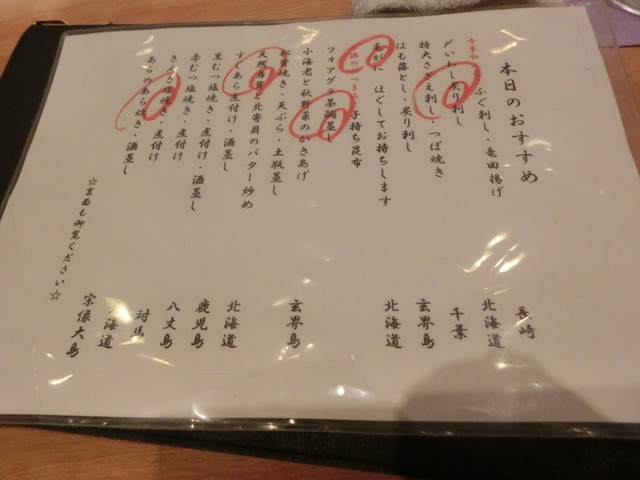 本日のおすすめ
ふぐ刺し・竜田揚げ 長崎
〆いわし炙り刺し 北海道
特大さざえ刺し・つぼ焼き 千葉
はも落とし・炙り刺し 玄界島
毛がに ほぐしてお持ちします 北海道
子持ち昆布
フォアグラ茶碗蒸し
小海老と秋野菜のかきあげ
松茸焼き・天ぷら・土瓶蒸し
天然舞茸と北寄貝のバター炒め 北海道
あら煮付け・酒蒸し
黒むつ塩焼き・煮付け 八丈島
赤むつ塩焼き・煮付け・酒蒸し 対馬
塩焼き・煮付け
あらのあら炊き・酒蒸し 宗像大島
☆裏面も御覧ください☆
玄界島
鹿児島